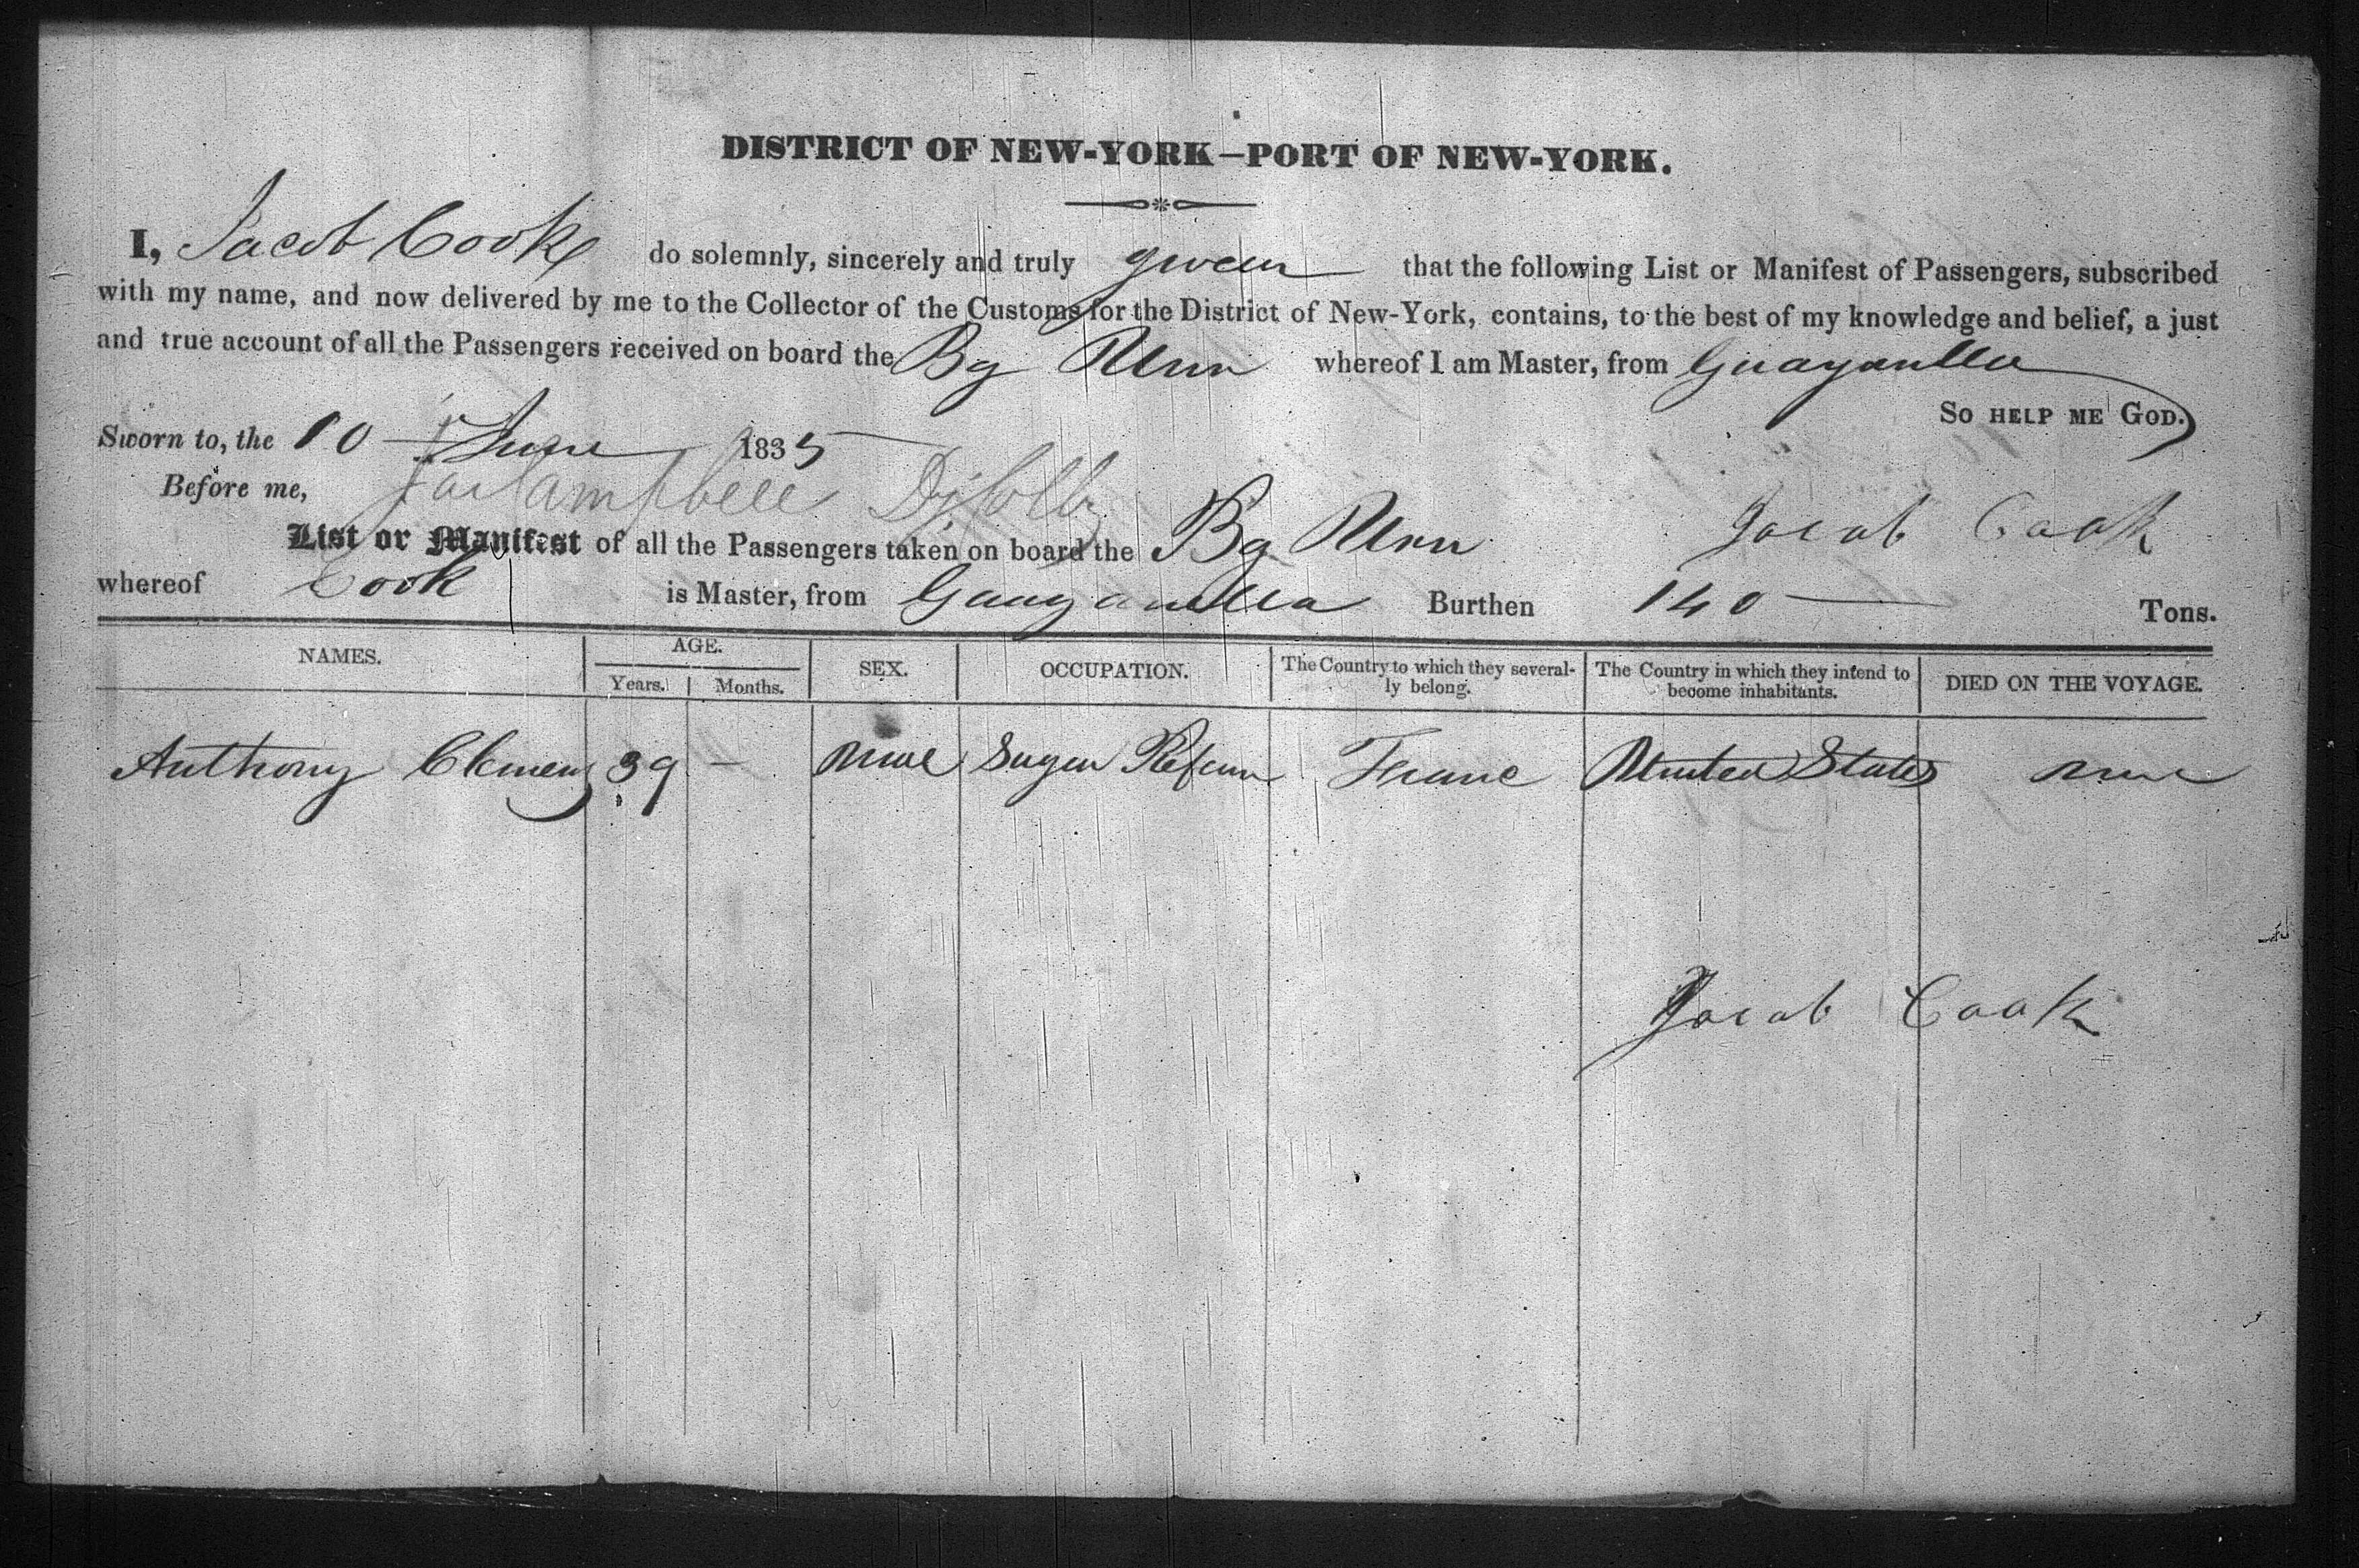 DISTRICT OF NEW-YORK—PORT OF NEW-YORK.
I, Jacob Cook do solemnly, sincerely and truly swear that the following List or Manifest of Passengers, subscribed
with my name, and now delivered by me to the Collector of the Customs for the District of New-York, contains, to the best of my knowledge and belief, a just
and true account of all the Passengers received on board the Bg Ann whereof I am Master, from Guayanilla
SO HELP ME GOD.
Sworn to, the 10 June 1835
Before me, Campbell Jacob Cook
List or Manifest of all the Passengers taken on board the Bg Ann
whereof Cook is Master, from Guayanilla Burthen 140 Tons.
NAMES. AGE. SEX. OCCUPATION. The Country to which they severally belong. The Country in which they intend to become inhabitants. DIED ON THE VOYAGE.
Years. Months.
Anthony Clemens 39 — Male Sugar Refiner France United States None
Jacob Cook